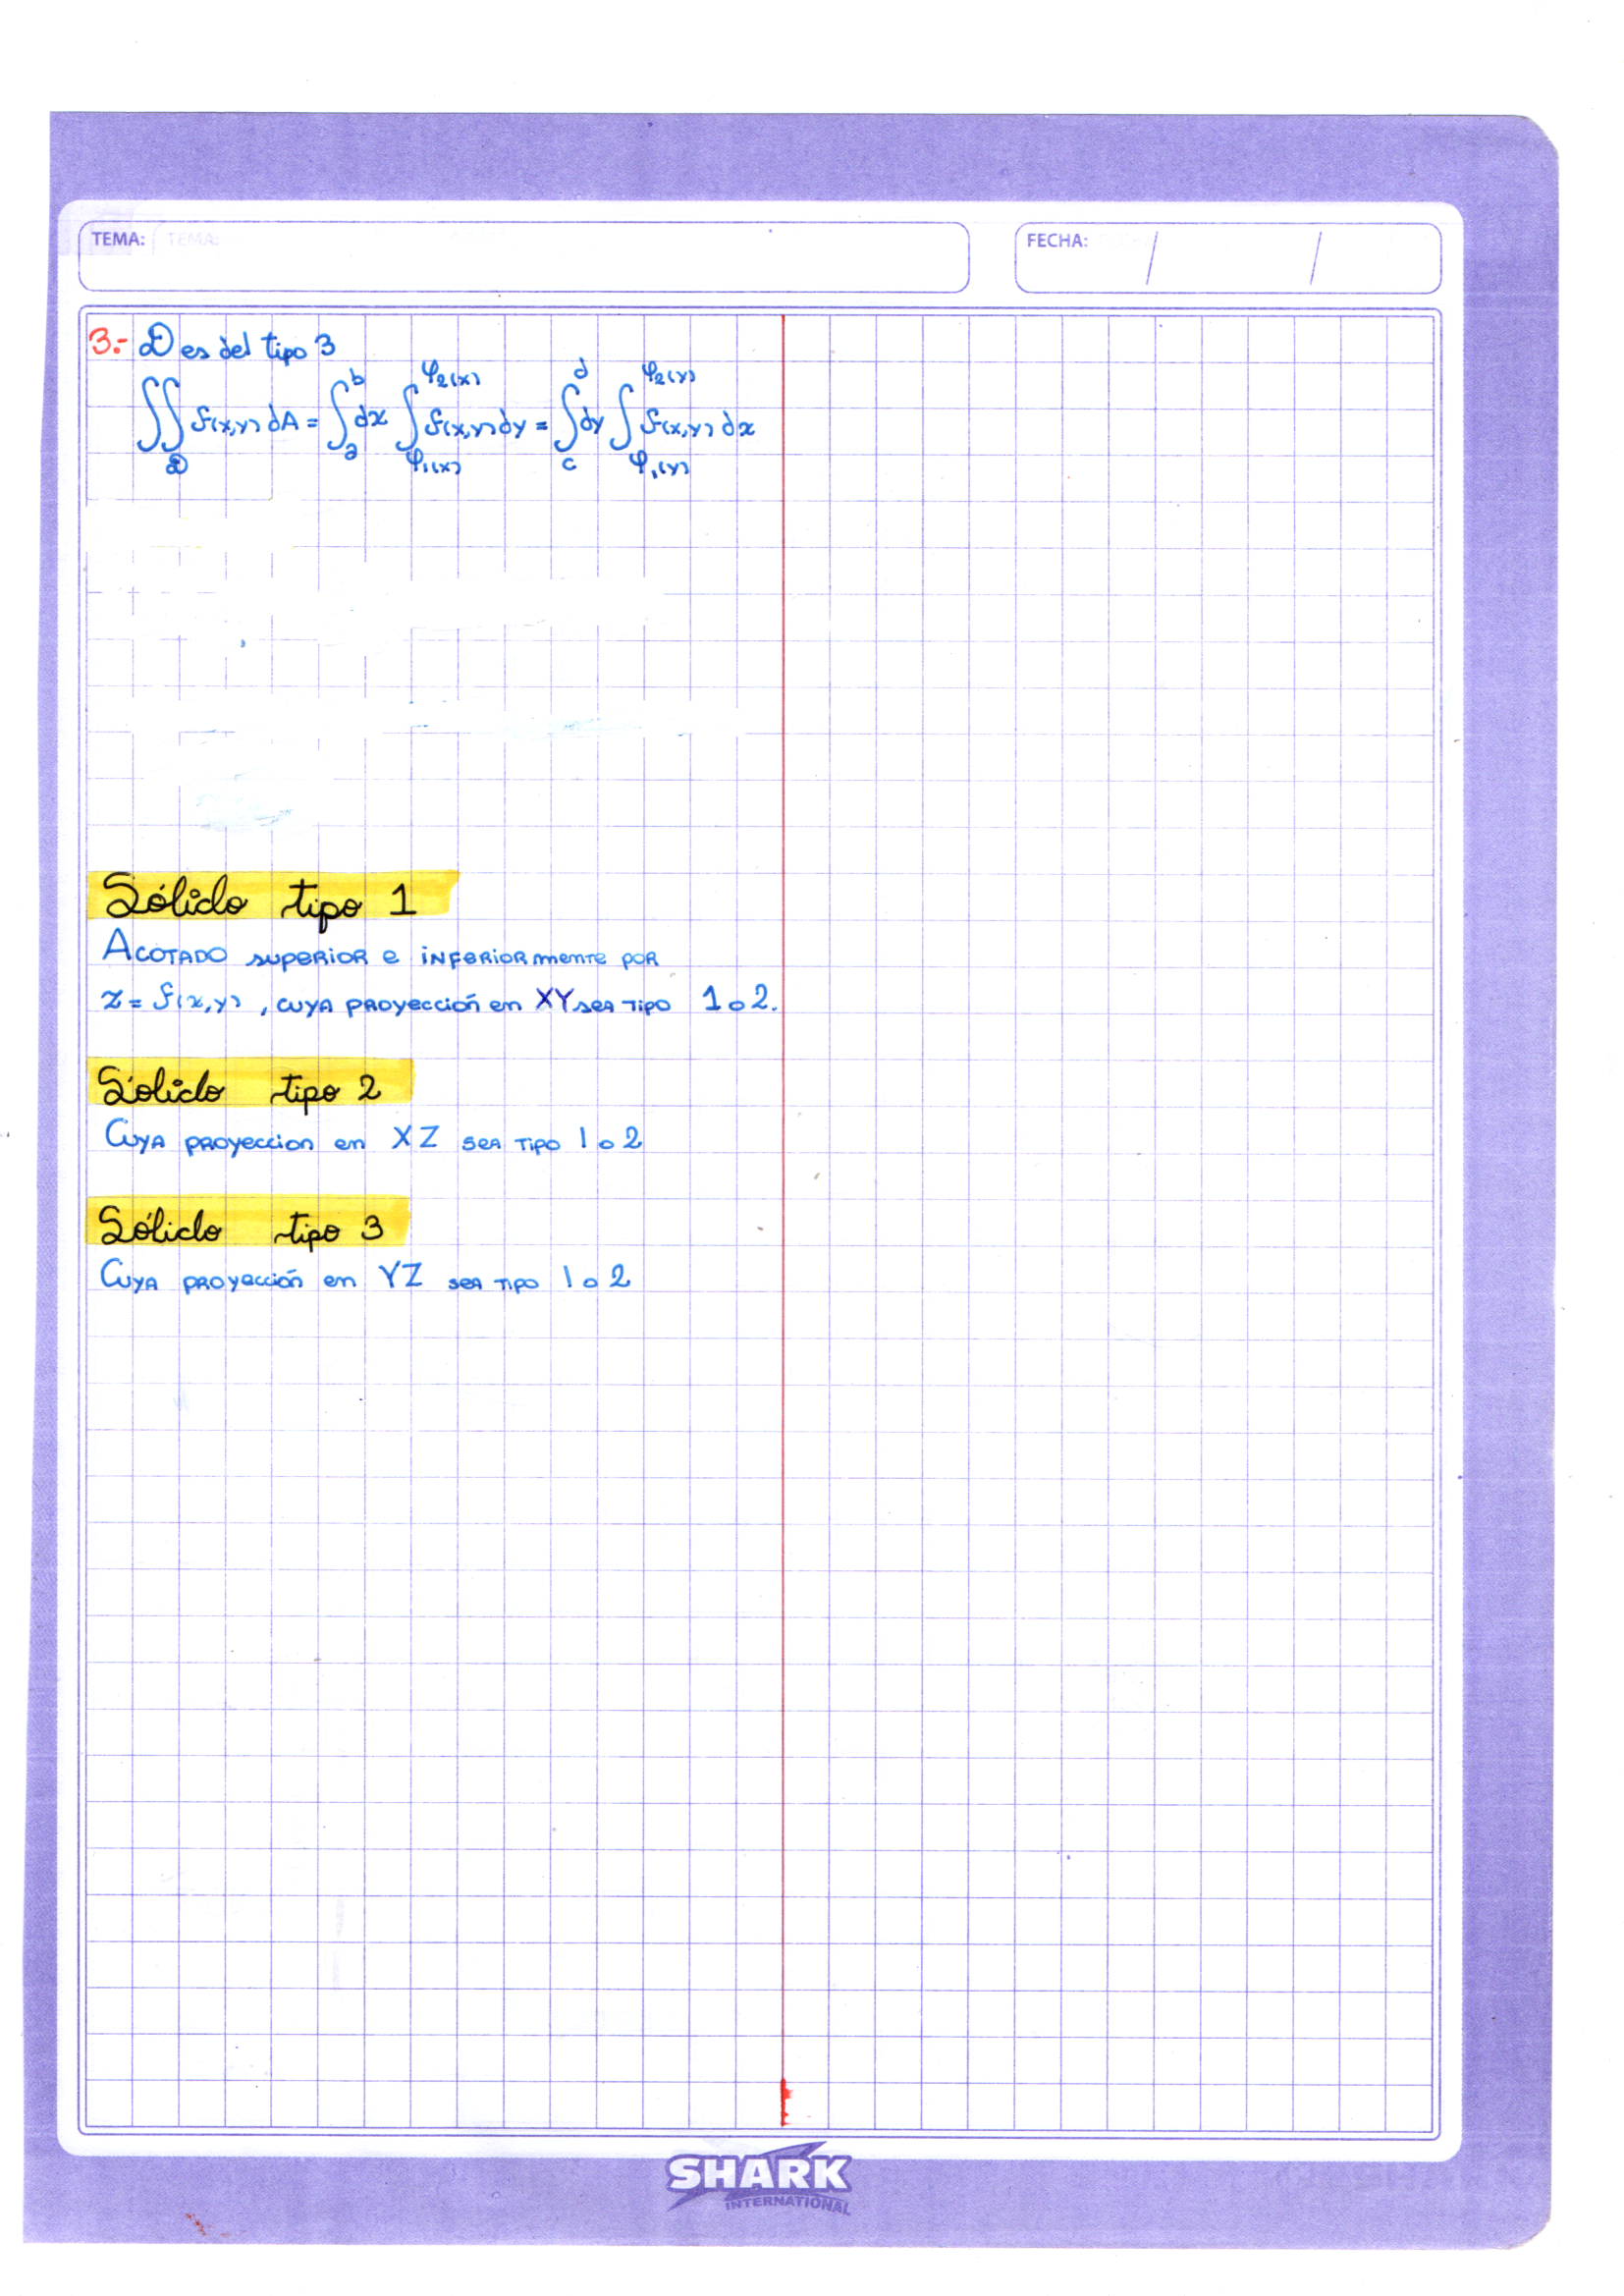 TEMA:
FECHA: / /
3.- D es del tipo 3
∬_D f(x,y) dA = ∫_a^b dx ∫_{φ₁(x)}^{φ₂(x)} f(x,y) dy = ∫_c^d dy ∫_{φ₁(y)}^{φ₂(y)} f(x,y) dx
Sólido tipo 1
Acotado superior e inferiormente por
z = f(x,y), cuya proyección en XY sea tipo 1 o 2.
Sólido tipo 2
Cuya proyeccion en XZ sea tipo 1 o 2
Sólido tipo 3
Cuya proyección en YZ sea tipo 1 o 2
SHARK
INTERNATIONAL